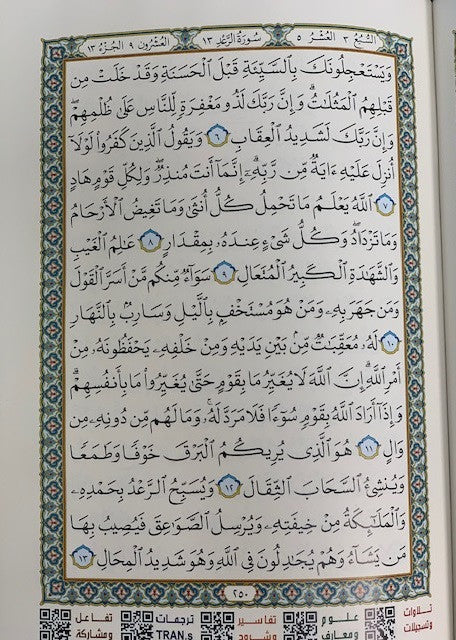 السُّبُع ٣ العُشُر ٥ سُورَةُ الرَّعْد ١٣ العِشْرُون ٩ الجُزْء ١٣
وَيَسْتَعْجِلُونَكَ بِالسَّيِّئَةِ قَبْلَ الْحَسَنَةِ وَقَدْ خَلَتْ مِن
قَبْلِهِمُ الْمَثُلَاتُ ۗ وَإِنَّ رَبَّكَ لَذُو مَغْفِرَةٍ لِّلنَّاسِ عَلَىٰ ظُلْمِهِمْ ۖ
وَإِنَّ رَبَّكَ لَشَدِيدُ الْعِقَابِ ٦ وَيَقُولُ الَّذِينَ كَفَرُوا لَوْلَا
أُنزِلَ عَلَيْهِ ءَايَةٌ مِّن رَّبِّهِ ۗ إِنَّمَا أَنتَ مُنذِرٌ ۖ وَلِكُلِّ قَوْمٍ هَادٍ
٧ اللَّهُ يَعْلَمُ مَا تَحْمِلُ كُلُّ أُنثَىٰ وَمَا تَغِيضُ الْأَرْحَامُ
وَمَا تَزْدَادُ ۖ وَكُلُّ شَيْءٍ عِندَهُ بِمِقْدَارٍ ٨ عَالِمُ الْغَيْبِ
وَالشَّهَادَةِ الْكَبِيرُ الْمُتَعَالِ ٩ سَوَاءٌ مِّنكُم مَّنْ أَسَرَّ الْقَوْلَ
وَمَن جَهَرَ بِهِ وَمَنْ هُوَ مُسْتَخْفٍ بِالَّيْلِ وَسَارِبٌ بِالنَّهَارِ
١٠ لَهُ مُعَقِّبَاتٌ مِّن بَيْنِ يَدَيْهِ وَمِنْ خَلْفِهِ يَحْفَظُونَهُ مِنْ
أَمْرِ اللَّهِ ۗ إِنَّ اللَّهَ لَا يُغَيِّرُ مَا بِقَوْمٍ حَتَّىٰ يُغَيِّرُوا مَا بِأَنفُسِهِمْ ۗ
وَإِذَا أَرَادَ اللَّهُ بِقَوْمٍ سُوءًا فَلَا مَرَدَّ لَهُ ۚ وَمَا لَهُم مِّن دُونِهِ مِن
وَالٍ ١١ هُوَ الَّذِي يُرِيكُمُ الْبَرْقَ خَوْفًا وَطَمَعًا
وَيُنشِئُ السَّحَابَ الثِّقَالَ ١٢ وَيُسَبِّحُ الرَّعْدُ بِحَمْدِهِ
وَالْمَلَائِكَةُ مِنْ خِيفَتِهِ وَيُرْسِلُ الصَّوَاعِقَ فَيُصِيبُ بِهَا
مَن يَشَاءُ وَهُمْ يُجَادِلُونَ فِي اللَّهِ وَهُوَ شَدِيدُ الْمِحَالِ ١٣
٢٥٠
تلاوات وتسجيلات
علوم ومعارف
تفاسير وشروح
ترجمات TRAN.s
تفاعل ومشاركة